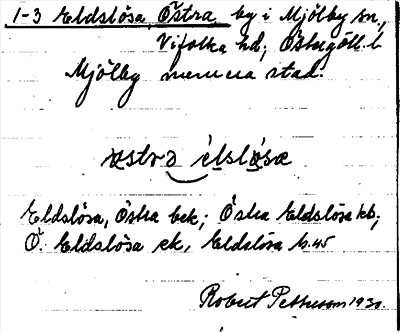 1-3 Eldslösa, Östra by i Mjölby sn.,
Vifolka hd; Östergötl. l.
Mjölby numera stad.
östra élslösa
Eldslösa, Östra bek; Östra Eldslösa kb;
Ö. Eldslösa ek, Eldslösa h. 45
Robert Pettersson 1930